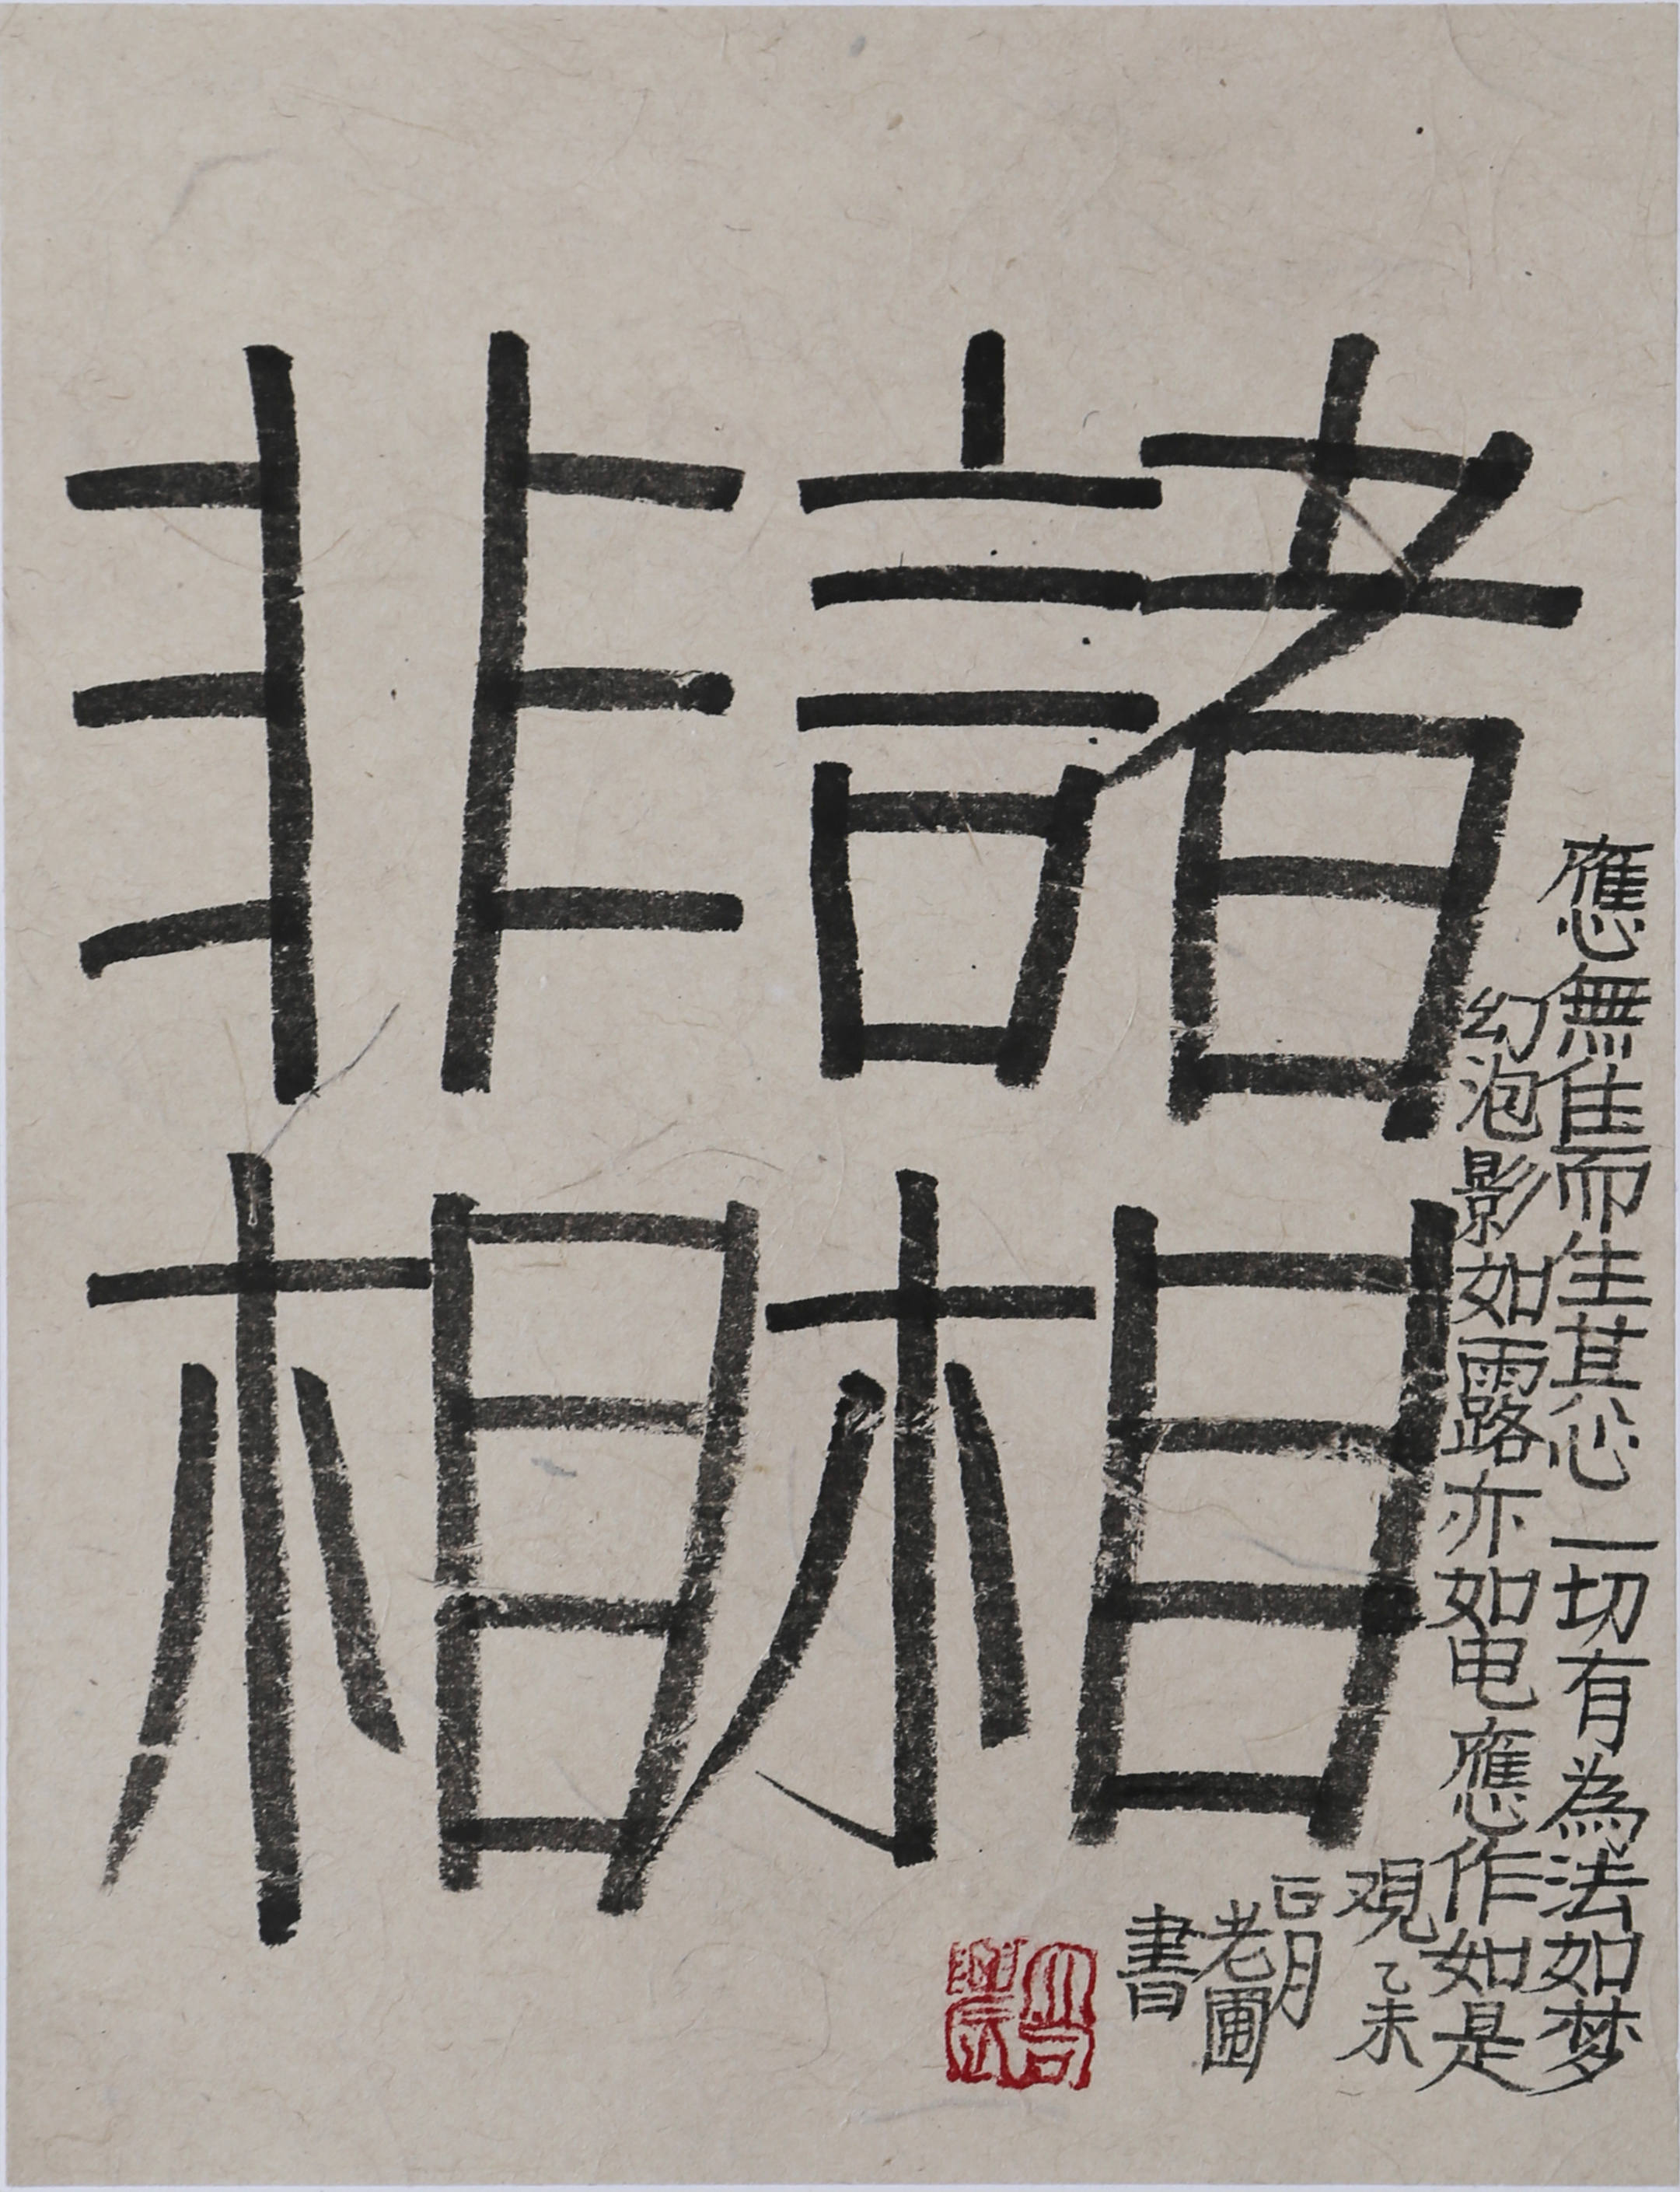 諸相
非相
應無住而生其心一切有為法如梦
幻泡影如露亦如电應作如是
观乙未
正月
老圃
書